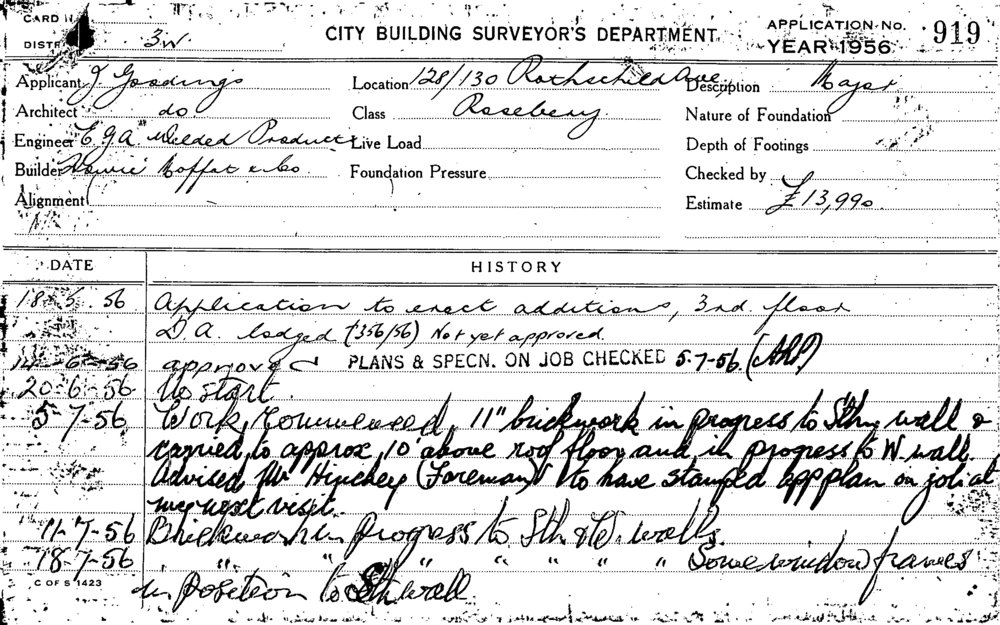 CARD
DISTR 3W
CITY BUILDING SURVEYOR'S DEPARTMENT.
APPLICATION No. 919
YEAR 1956
Applicant J Goodings
Location 128/130 Rothschild Ave,
Description Major
Architect do
Class Rosebery
Nature of Foundation
Engineer E G A Welded Products
Live Load
Depth of Footings
Builder Howie Moffat & Co
Foundation Pressure
Checked by
Alignment
Estimate £13,990
DATE HISTORY
18-5-56 Application to erect additions, 3rd floor
D.A. lodged (356/56) Not yet approved.
14-6-56 approved PLANS & SPECN. ON JOB CHECKED 5-7-56.
20-6-56 No start.
5-7-56 Work Commenced, 11" brickwork in progress to Sth wall &
carried to approx 10' above roof floor and in progress to W. wall.
Advised Mr Hinchey (Foreman) to have stamped app plan on job at
my next visit.
11-7-56 Brickwork in progress to Sth & W. walls.
18-7-56 " " " " " " " Some window frames
in position to Sth wall
C OF S 1423